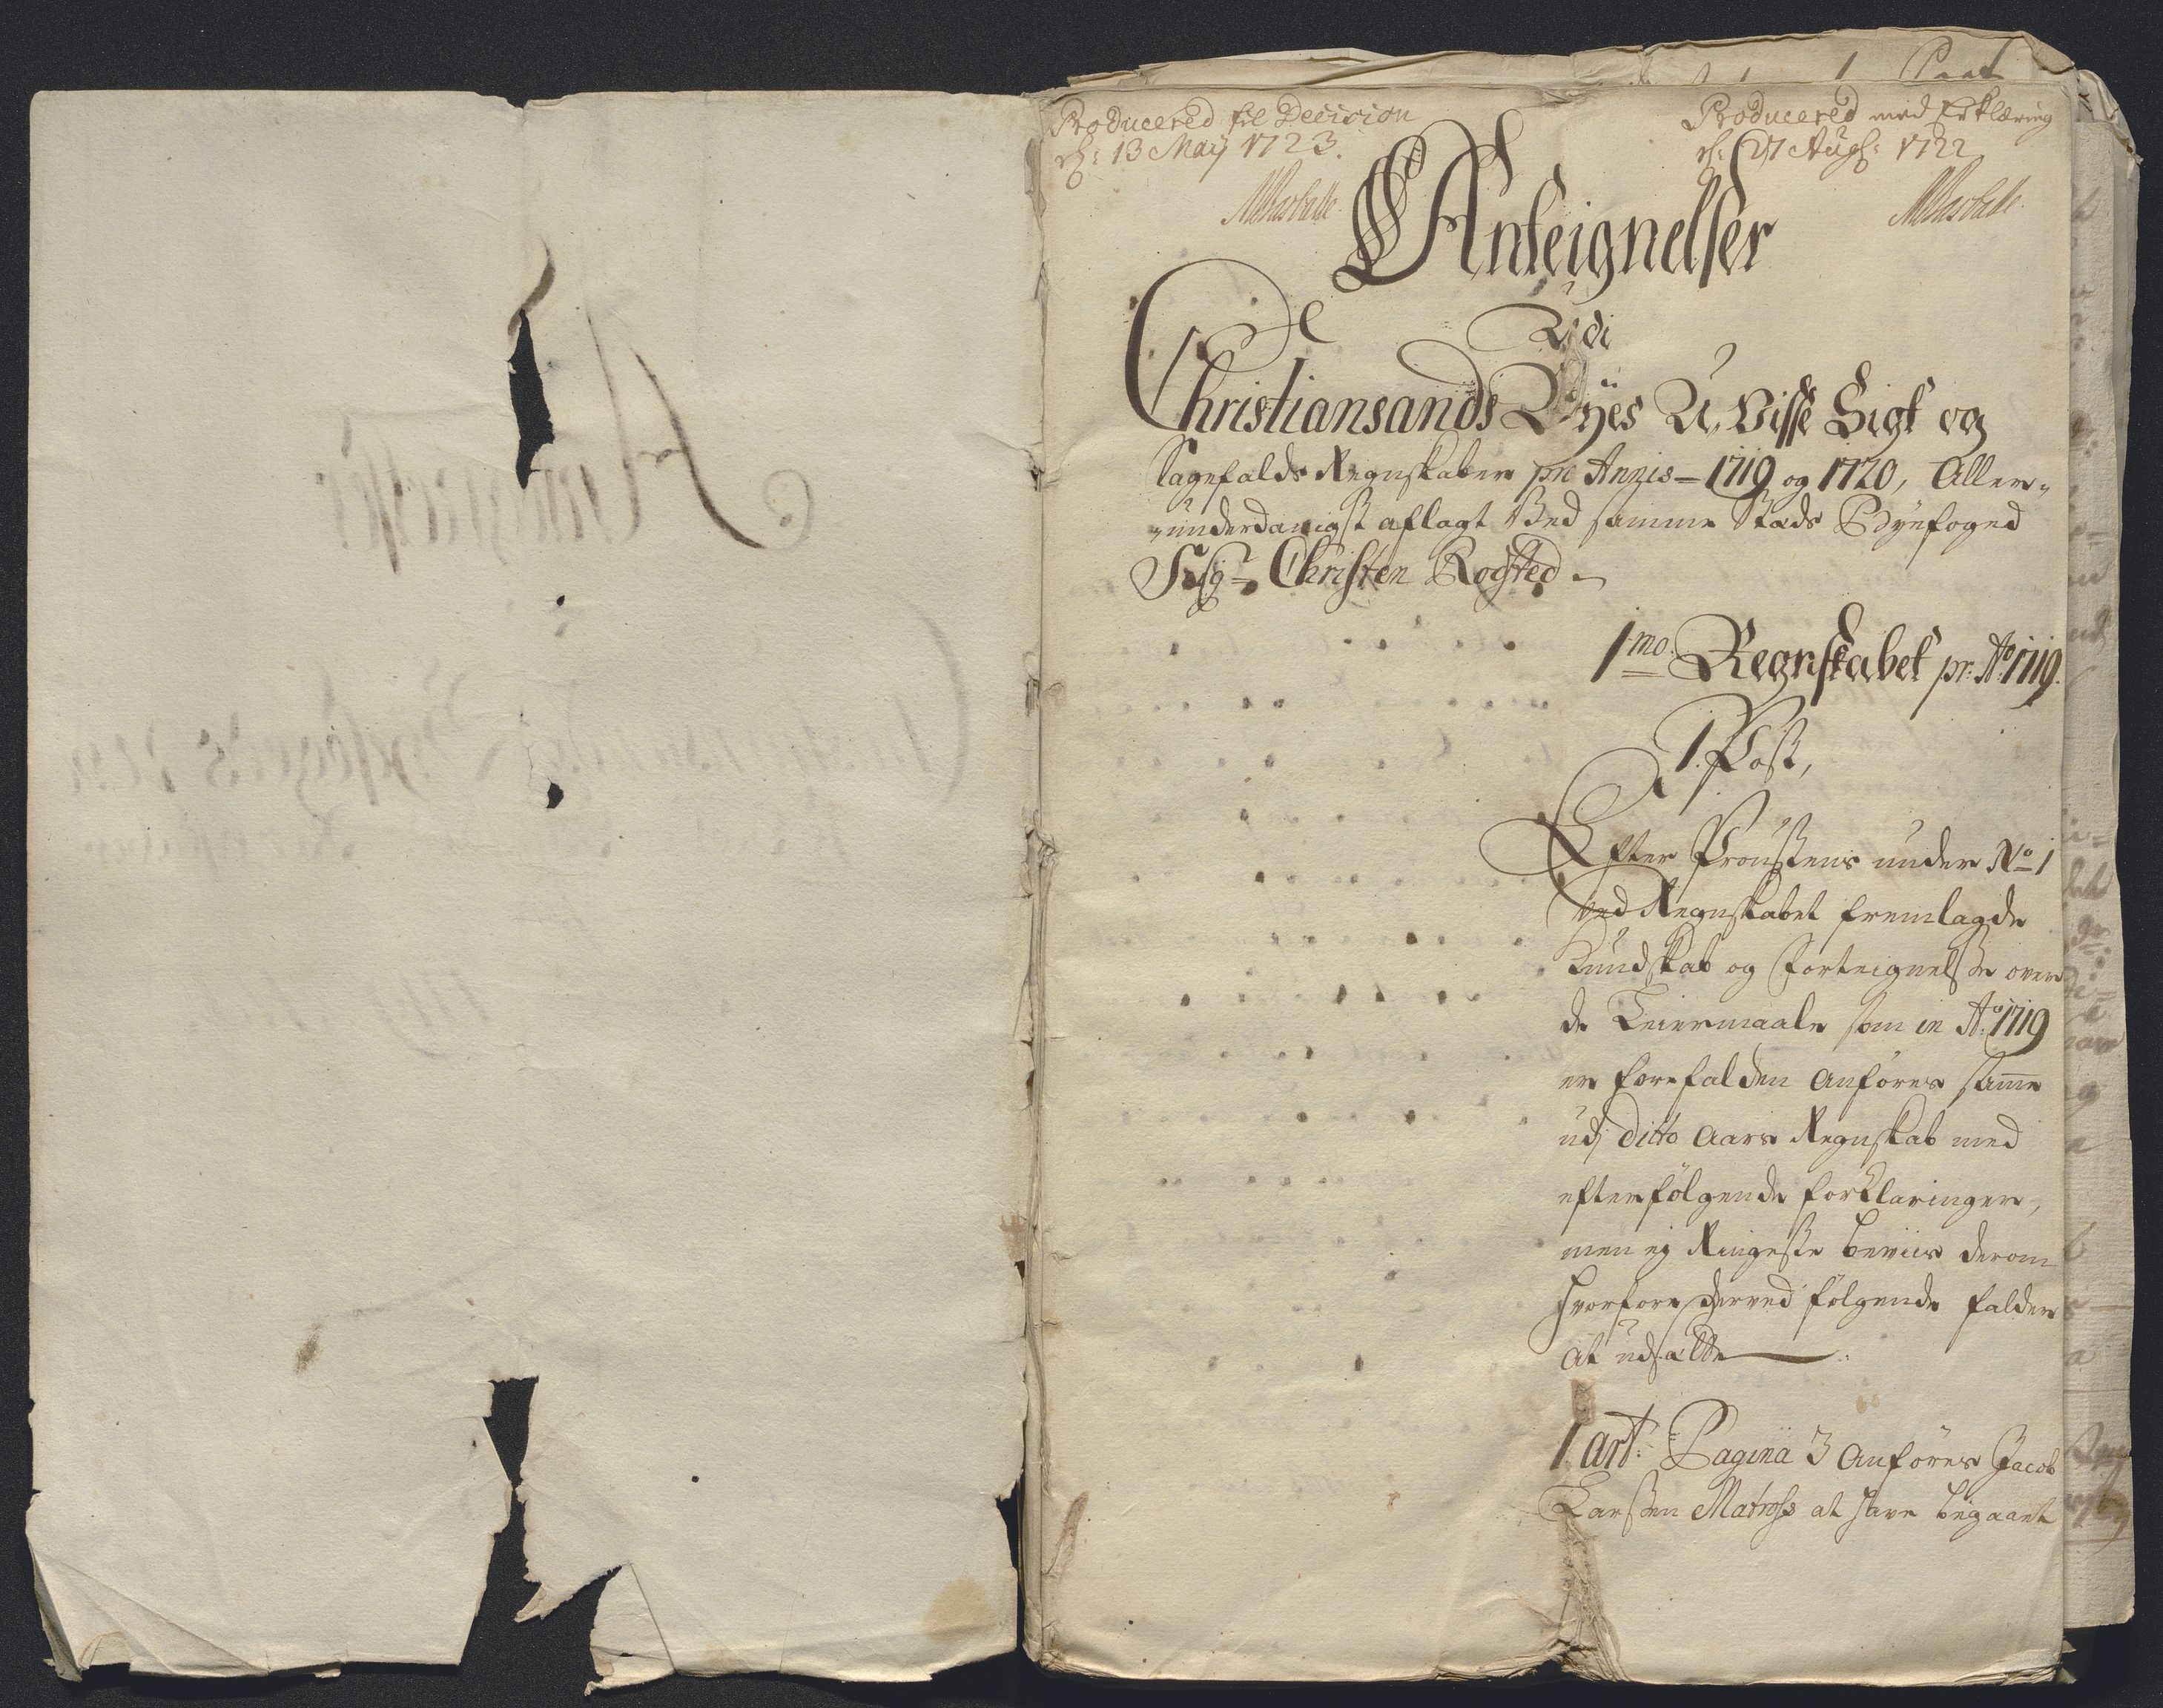 Producered til Decision
d: 13 Maij 1723.
Producered med Erklæring
d: 27 Augs: 1722
Anteignelser
Udi
Christiansands Byes U, Visse Sigt og
Sagefalds Regnskaber pro Annis – 1719 og 1720, Aller„
„underdanigst aflagt Ved samme Stads Byefoged
Sr Christen Rogsted
1mo Regnskabet pr: Ao 1719.
1. Post,
Efter Proustens under No 1
Ved Regnskabet fremlagde
Kundskab og Forteignelse over
de Leiermaale som in Ao 1719
er forefalden Anføres same
udj Ditto Aars Regnskab med
efterfølgende forklaringer,
men ej Ringeste beviis derom
hvorfore derved følgende falder
at udsætte
1. art: Pagina 3 Anføres Jacob
Larsen Matros at have begaaet